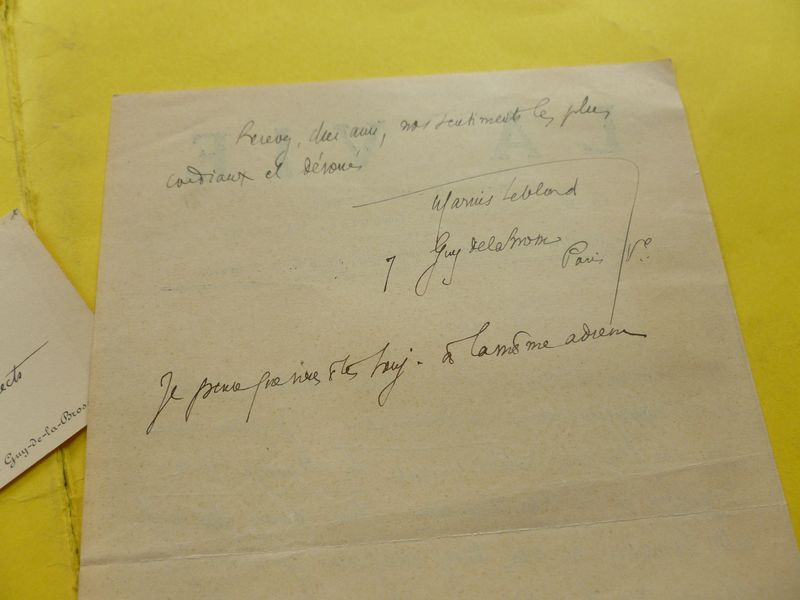 Recevez, cher ami, nos sentiments les plus
cordiaux et dévoués
Marius Leblond
7 Guy de la Brosse Paris Ve
Je pense que vous êtes touj. à la même adresse
ects
Guy-de-la-Bros